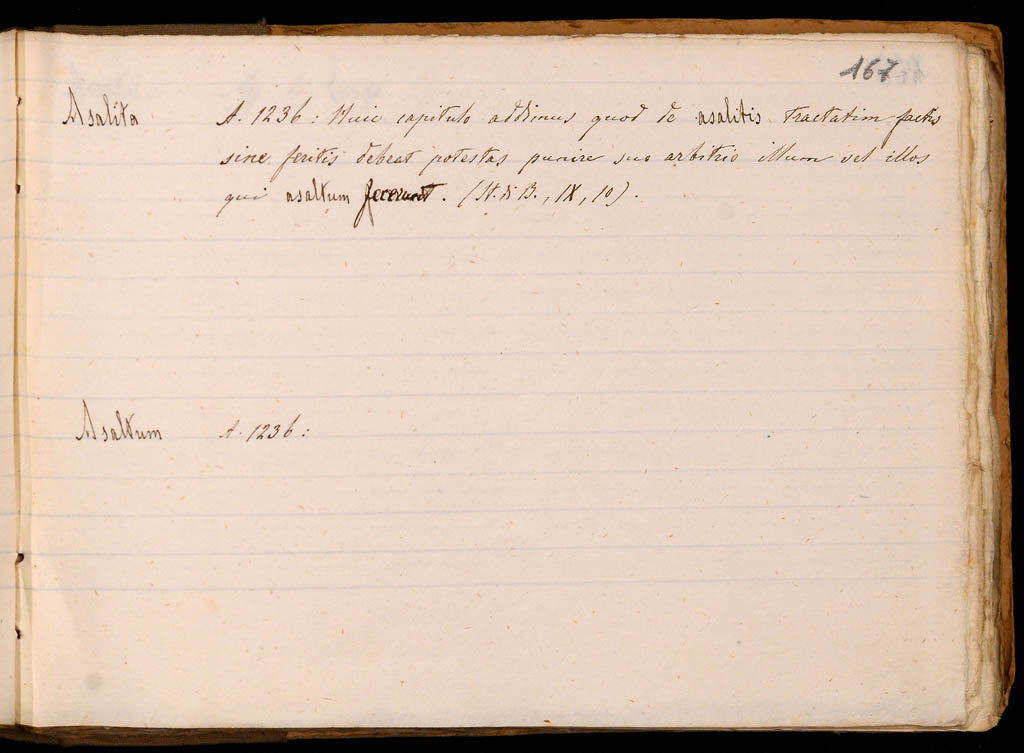 167
Asalita A. 1236: Huic capitulo addimus quod de asalitis tractatim factis
sine feritis debeat potestas punire suo arbitrio illum vel illos
qui asaltum fecerunt. (St. di B., IX, 10).
Asaltum A. 1236: